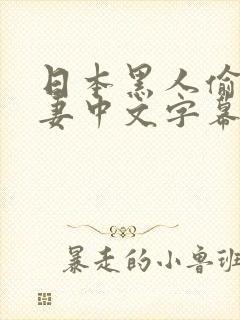 日本黑人偷
妻中文字幕
暴走的小鲁班